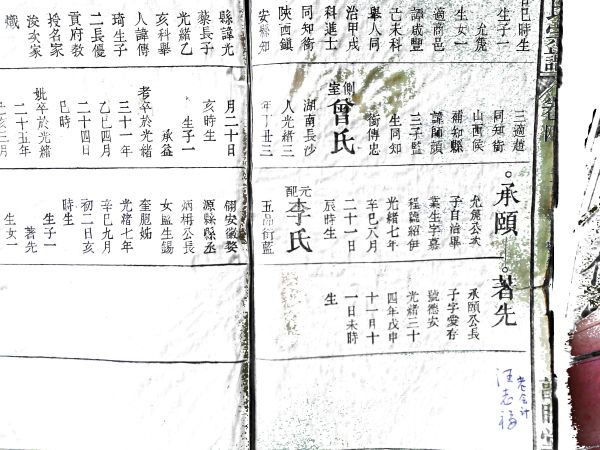 三適趙
同知銜
山西候
補知縣
諱師顔
三子監
生同知
銜傳忠
側室曾氏
湖南長沙
人光緒三
年丁丑三
月二十日
亥時生
生子一
承益
考卒於光緒
三十一年
乙巳四月
二十四日
巳時
妣卒於光緒
二十五年
己時生
生子一
允箎
生女一
適商邑
譚咸豐
己未科
舉人同
治甲戌
科進士
同知銜
陝西鎮
安縣知
縣諱光
藜長子
光緒乙
亥科舉
人諱傳
琦生子
二長優
貢府教
授名家
渙次家
熾
承頤
允箎公次
子自治畢
業生字慕
程諱紹伊
光緒七年
辛巳八月
二十一日
辰時生
元配李氏
五品銜藍
翎安徽婺
源縣縣丞
炳栂公長
女監生錫
奎胞姊
光緒七年
辛巳九月
初二日亥
時生
生子一
著先
生女一
著先
承頤公長
子字愛存
號德安
光緒三十
四年戊申
十一月十
一日未時
生
老会计
汪志福